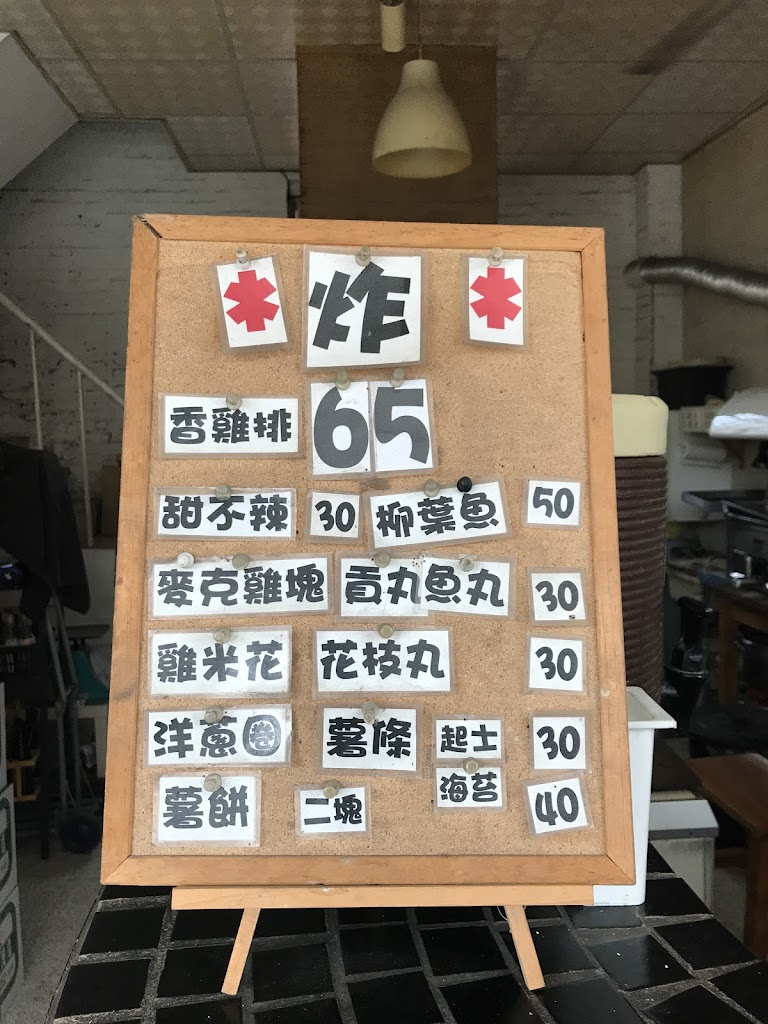 * 炸 *
香雞排 65
甜不辣 30 柳葉魚 50
麥克雞塊 貢丸魚丸 30
雞米花 花枝丸 30
洋蔥圈 薯條 起士 30
薯餅 二塊 海苔 40